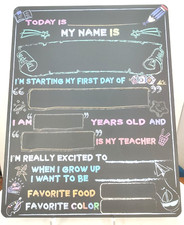 TODAY IS
MY NAME IS
I'M STARTING MY FIRST DAY OF
I AM YEARS OLD AND
IS MY TEACHER
I'M REALLY EXCITED TO
WHEN I GROW UP
I WANT TO BE
FAVORITE FOOD
FAVORITE COLOR